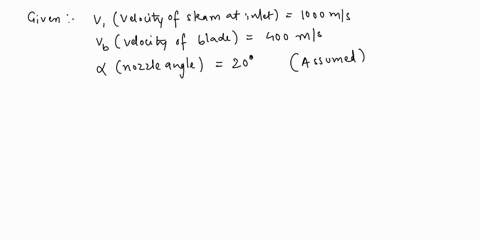 Given :- V₁ (Velocity of steam at inlet) = 1000 m/s
V_b (velocity of blade) = 400 m/s
α (nozzle angle) = 20° (Assumed)